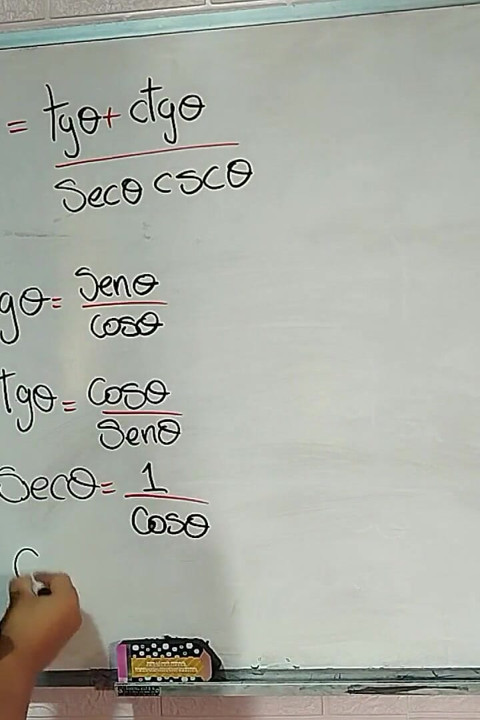 = tgθ + ctgθ
secθ cscθ
gθ = senθ
cosθ
tgθ = cosθ
senθ
secθ = 1
cosθ
C